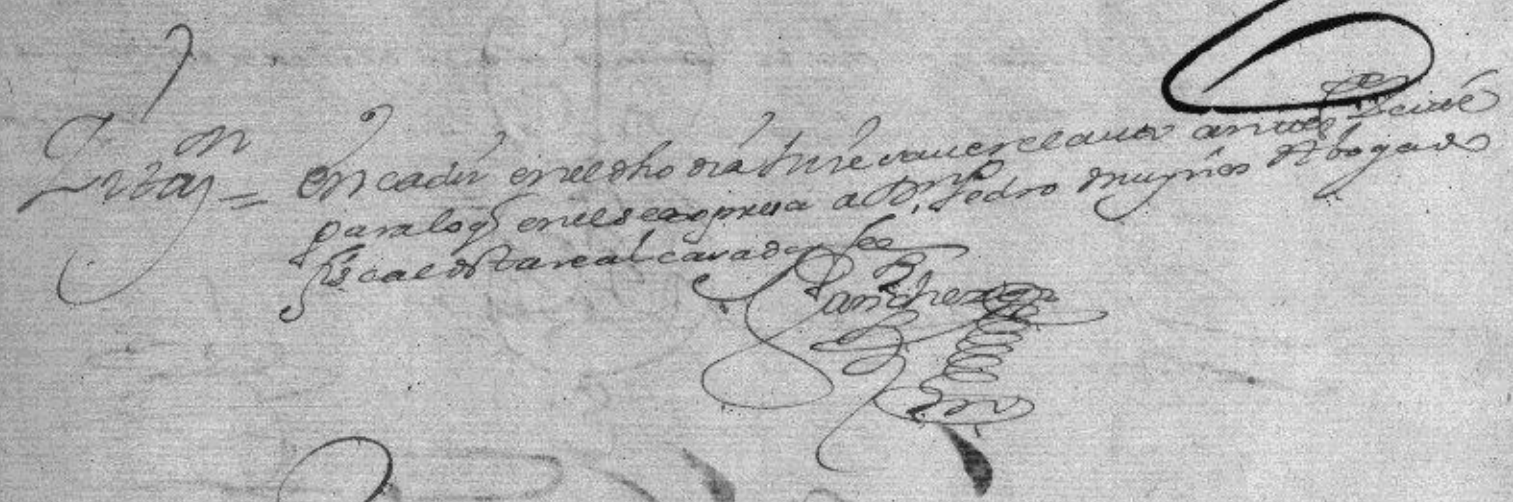 Zitaz.on = En cadiz en el dho dia hize saver el auto antesedte y cité
para lo q en el se expresa a Dn Pedro Muñoz Abogado
fiscal de sta real Cavada doy fee
Sanchez